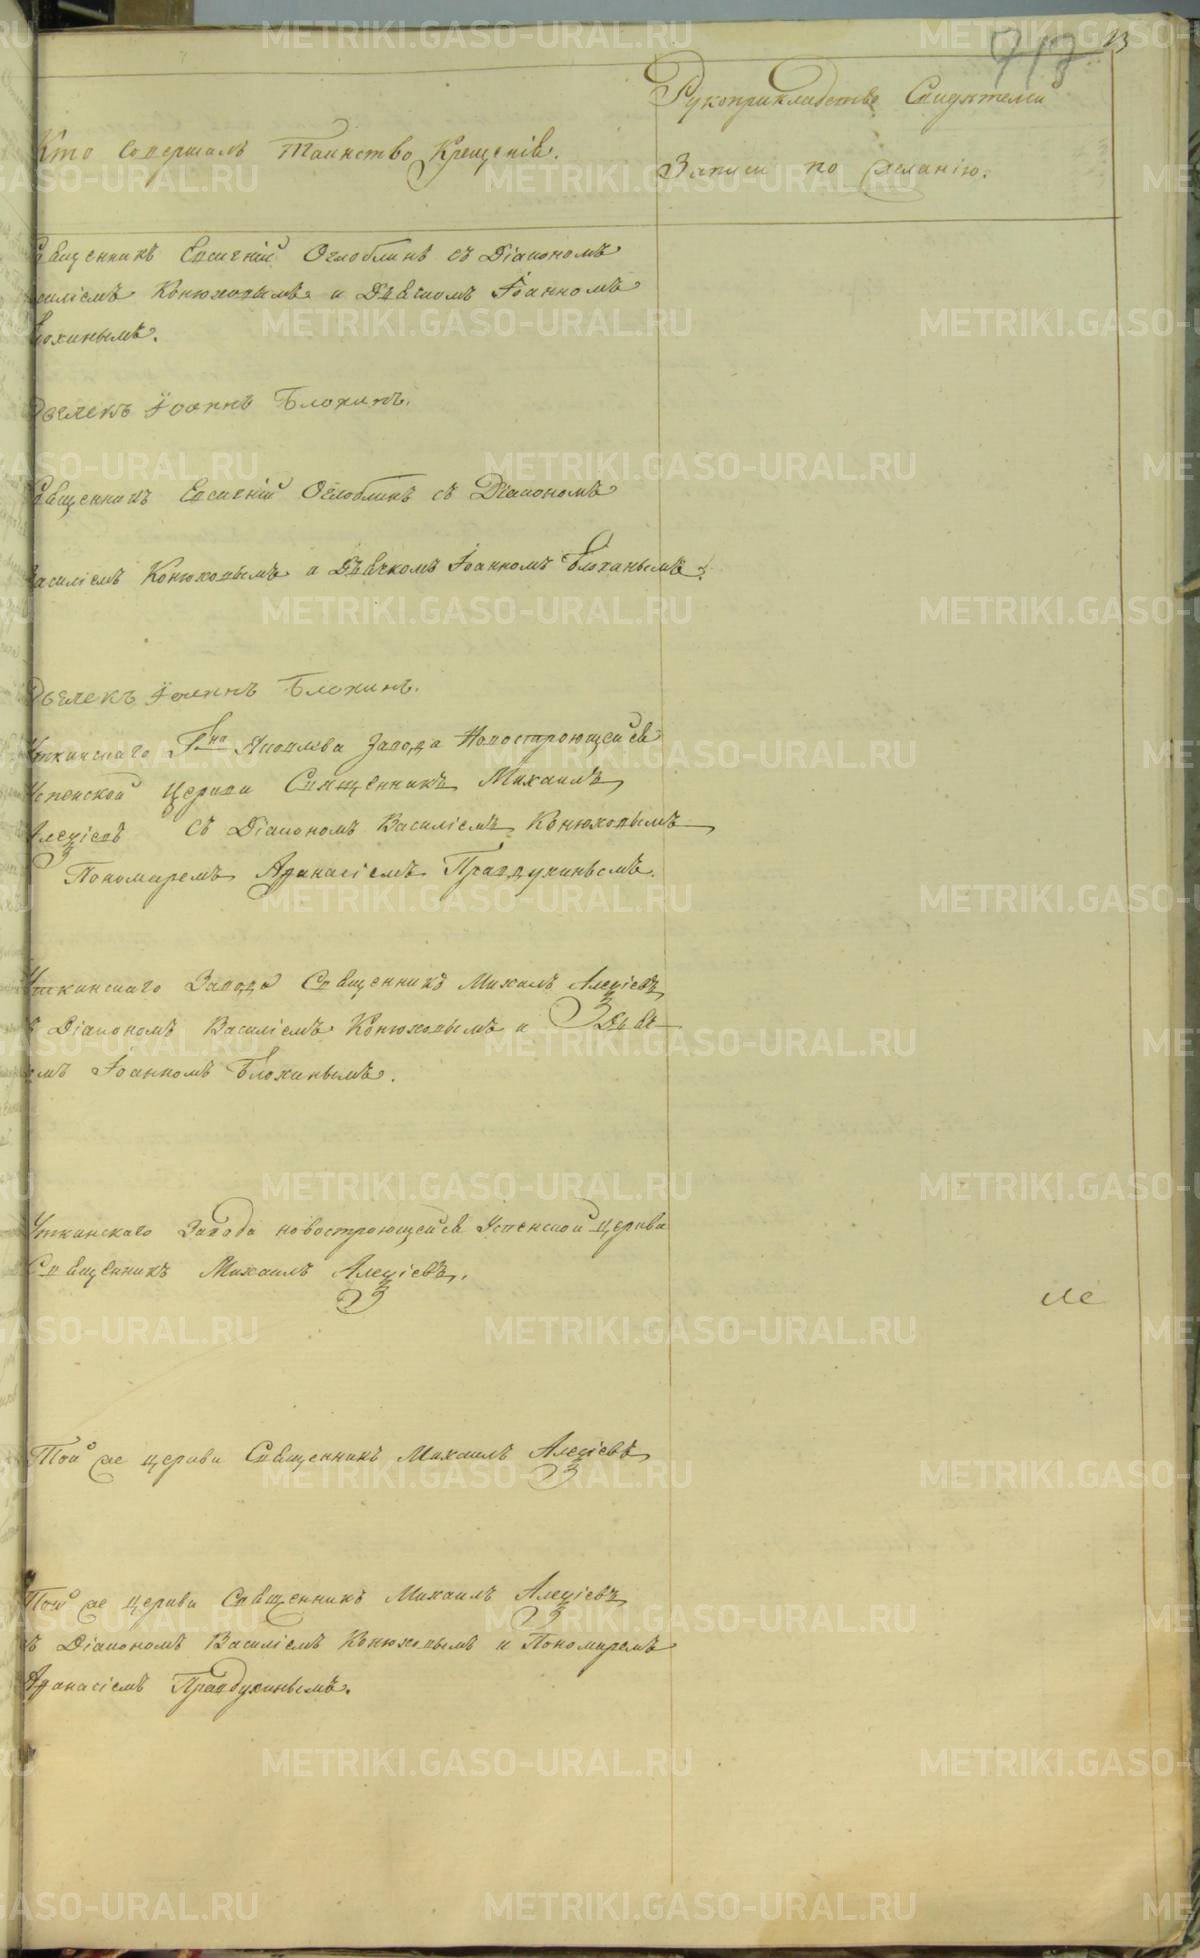 717
13
Кто совершалъ Таинство Крещенія.
Рукоприкладство Свидѣтелей
Записи по желанію.
Священникъ Евсигній Оглоблинъ съ Діакономъ
Василіемъ Конюховымъ и Дьячкомъ Іоанномъ
Блохинымъ.
Дьячекъ Іоаннъ Блохинъ.
Священникъ Евсигній Оглоблинъ съ Діакономъ
Василіемъ Конюховымъ и Дьячкомъ Іоанномъ Блохинымъ.
Дьячекъ Іоаннъ Блохинъ.
Уткинскаго Гна Яковлева Завода Новостроющейся
Успенской Церкви Священникъ Михаилъ
Алексіевъ съ Діакономъ Василіемъ Конюховымъ
Пономаремъ Афанасіемъ Правдухинымъ.
Уткинскаго Завода Священникъ Михаилъ Алексіевъ
съ Діакономъ Василіемъ Конюховымъ и Дьяч
комъ Іоанномъ Блохинымъ.
Уткинскаго Завода новостроющейся Успенской церкви
Священникъ Михаилъ Алексіевъ.
Той же церкви Священникъ Михаилъ Алексіевъ
Той же церкви Священникъ Михаилъ Алексіевъ
съ Діакономъ Василіемъ Конюховымъ и Пономаремъ
Афанасіемъ Правдухинымъ.
METRIKI.GASO-URAL.RU